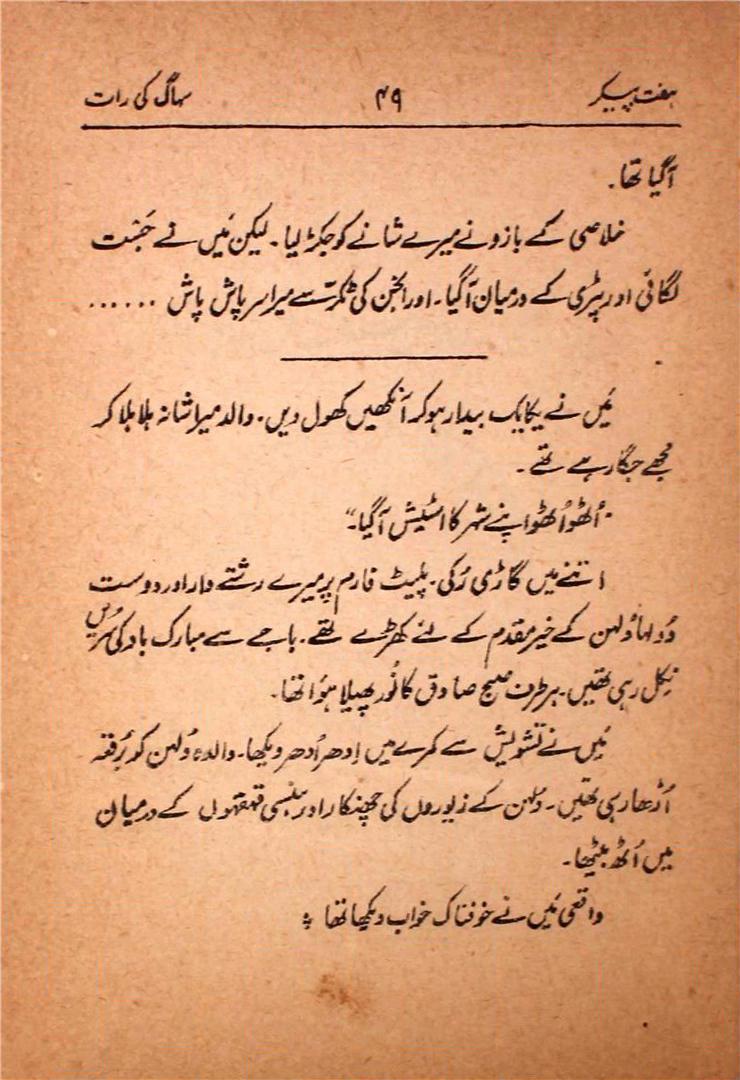 ہفت پیکر ۴۹ سہاگ کی رات
آگیا تھا۔
خلاصی کے بازو نے میرے شانے کو جکڑ لیا۔ لیکن مَیں نے جَست
لگائی اور پٹڑی کے درمیان آگیا۔ اور انجن کی ٹکّر سے میرا سر پاش پاش ......
مَیں نے یکایک بیدار ہوکر آنکھیں کھول دیں۔ والد میرا شانہ ہلا ہلا کر
مجھے جگا رہے تھے۔
"اُٹھو اُٹھو اپنے شہر کا اسٹیشن آگیا۔"
اتنے میں گاڑی رُکی۔ پلیٹ فارم پر میرے رشتے دار اور دوست
دُولہا دُلہن کے خیر مقدم کے لئے کھڑے تھے۔ باجے سے مبارک باد کی سُریں
نِکل رہی تھیں۔ ہر طرف صبح صادق کا نُور پھیلا ہُوا تھا۔
مَیں نے تشویش سے کمرے میں اِدھر اُدھر دیکھا۔ والدہ دُلہن کو بُرقعہ
اُڑھا رہی تھیں۔ دُلہن کے زیوروں کی جھنکار اور ہنسی قہقہوں کے درمیان
میں اُٹھ بیٹھا۔
واقعی مَیں نے خوفناک خواب دیکھا تھا ۞